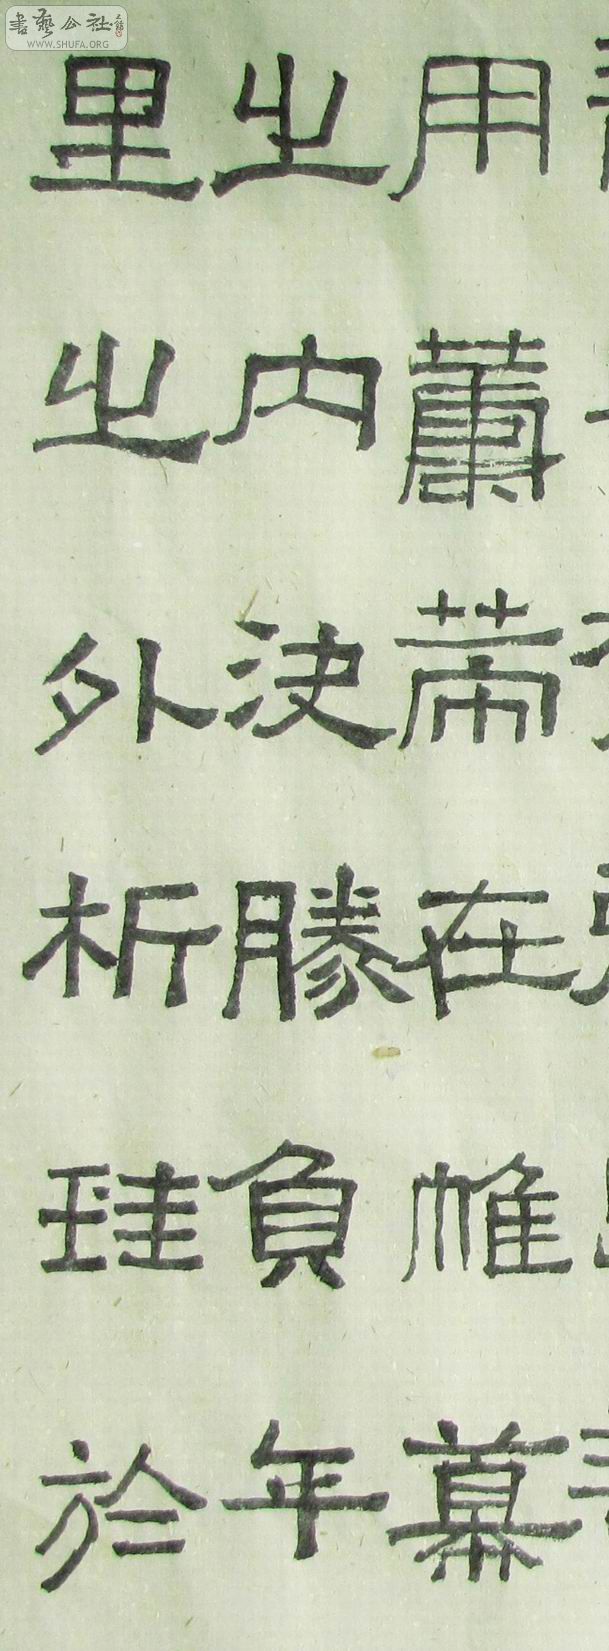 書藝公社
WWW.SHUFA.ORG
用蕭在帷幕
之內決勝負年
里之外析珪於